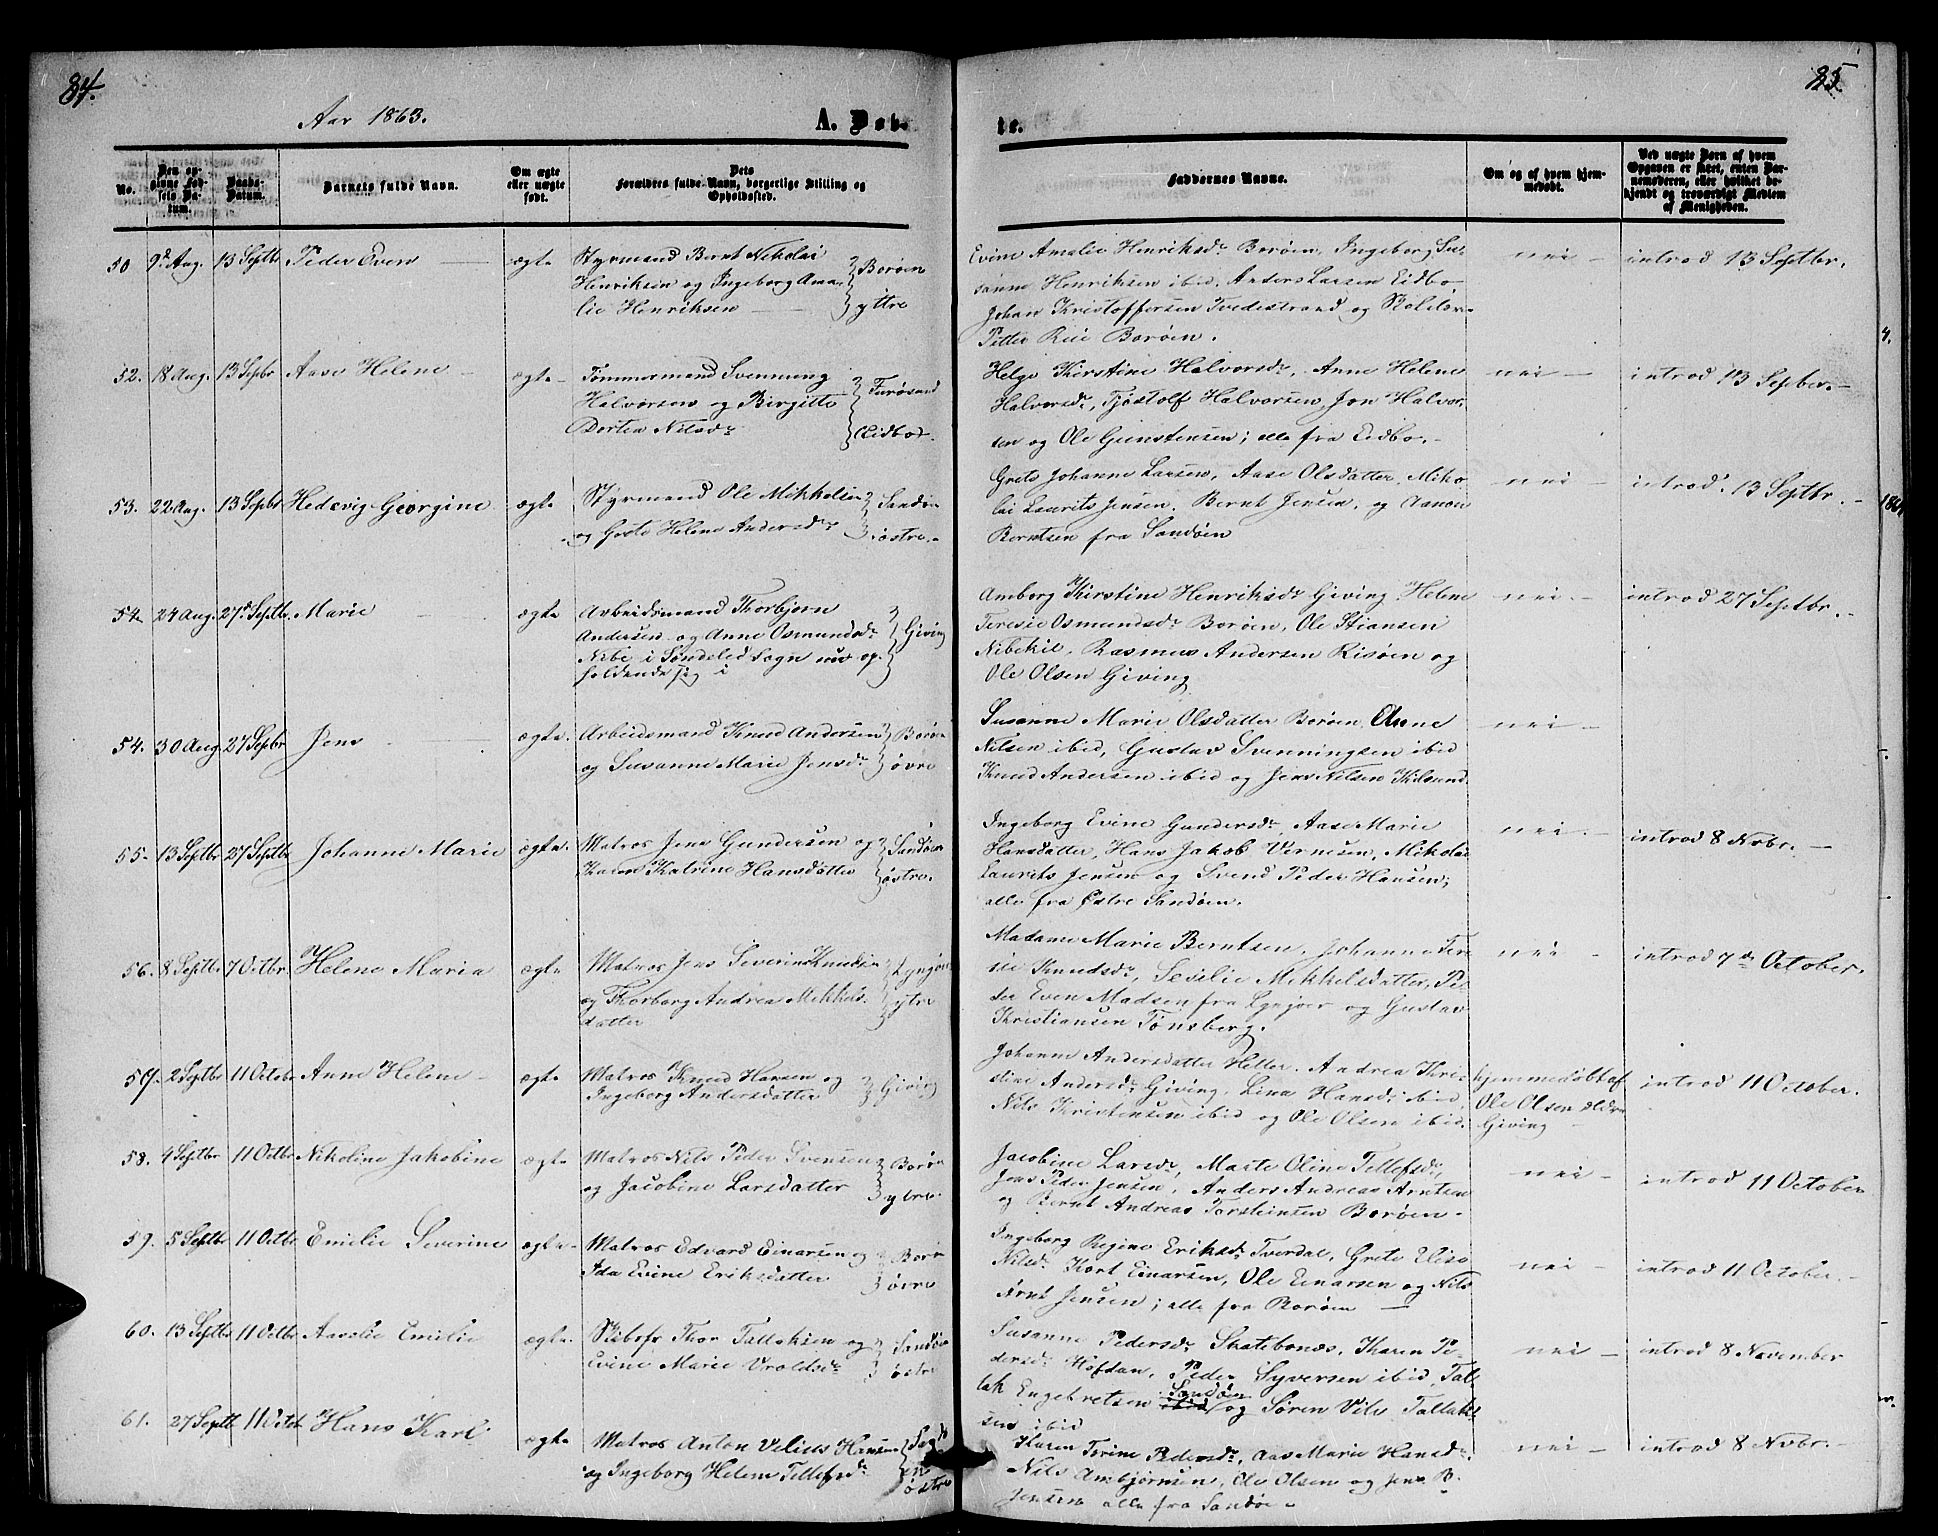 84.
Aar 1863.
A. Døb-
No.
Den op-
givne Fød-
sels Da-
tum.
Daabs-
Datum.
Barnets fulde Navn.
Om ægte
eller uægte
født.
Dets
Forældres fulde Navn, borgerlige Stilling og
Opholdssted.
50 9d Aug. 13 Septbr Peder Even ægte Styrmand Bernt Nikolai
Henriksen og Ingeborg Ama-
lie Henriksen Borøen
yttre
52. 18 Aug. 13 Sepbr Aase Helene ægte Tømmermand Svennung
Halvorsen og Birgitte
Dortea Nilsdr Furøsund
Eidbo
53. 22 Aug. 13 Sepbr Hedevig Georgine ægte Styrmand Ole Mikkelsen
og Grete Helene Andersdr Sandøen
østre.
54 24 Aug. 27d Septbr. Marie ægte Arbeidsmand Thorbjørn
Andersen og Anne Osmundsdr
Nibe i Søndeled Sogn nu op-
holdende sig i Giving
54. 30 Aug 27 Sepbr Jens ægte. Arbeidsmand Knud Andersen
og Susanne Marie Jensdr Borøen
øvre
55. 13 Septbr 27 Septbr Johanne Marie ægte. Matros Jens Gundersen og
Karen Katrine Hansdatter Sandøen
østre.
56. 8 Septbr 7 Octbr. Helene Maria ægte Matros Jens Severin Knudsen
og Thorborg Andrea Mikkels-
datter Lyngøer
ytre
57. 2 Septbr 11 Octobr Anne Helene ægte Matros Knud Hansen og
Ingeborg Andersdatter Giving
58. 4 Septbr 11 Octbr. Nikoline Jakobine ægte Matros Nils Peder Svensen
og Jacobine Larsdatter Borøen
ytre
59. 5 Septbr 11 Octbr Emilie Severine ægte. Matros Edvard Einarsen og
Ida Evine Eriksdatter Borøen
øvre
60. 13 Septbr 11 Octbr Aaselie Emilie ægte. Skibsfr Thor Tallaksen og
Evine Marie Uroldsdr Sandøen
østre
61. 27 Septbr 11 Octbr Hans Karl ægte Matros Anton Velius Hansen
og Ingeborg Helene Tellefsdr
østre
85.
te.
Faddernes Navne.
Om og af hvem hjem-
medøbt.
Ved uægte Børn af hvem
Opgaven er sket, enten Bar-
nemoderen, eller hvilket be-
kjendt og troværdigt Medlem
af Menigheden.
Evine Amalie Henriksdr Borøen, Ingeborg Su-
sanne Henriksen ibid, Anders Larsen Eidbo,
Johan Kristoffersen Tvedestrand og Skolelær.
Petter Riie Borøen. nei introd 13 Septbr.
Helge Kirstine Halvorsdr, Anne Helene
Halvorsdr, Tjøstolf Halvorsen, Jon Halvor-
sen og Ole Gunstensen; alle fra Eidbo. nei introd 13 Sepber.
Grete Johanne Larsen, Aase Olsdatter, Niko-
lai Laurits Jensen, Bernt Jensen, og Aanon
Berntsen fra Sandøen nei introd. 13 Septbr.
Amborg Kirstine Henriksdr Giving Helene
Teresie Osmundsdr Borøen, Ole Stiansen
Nibekil, Rasmus Andersen Risøen og
Ole Olsen Giving nei. introd 27 Septbr.
Susanne Marie Olsdatter Borøen, Anne
Nilsen ibid, Gustav Svenningsen ibid
Knud Andersen ibid og Jens Nilsen Kilsund nei
Ingeborg Evine Gundersdr, Aase Marie
Hansdatter, Hans Jakob Vernesen, Nikolai
Laurits Jensen og Svend Peder Hansen;
alle fra Østre Sandøen. nei. introd 8 Nvbr.
Madame Marie Berntsen, Johanne Tere-
sie Knudsdr, Sesilie Mikkelsdatter, Pe-
der Even Madsen fra Lyngøer og Gustav
Kristiansen Tønsberg. nei introd 7de October.
Johanne Andersdatter Heller. Andrea Kri-
stine Andersdr Giving, Lina Hansdr ibid,
Nils Kristensen ibid og Ole Olsen ibid. hjemmedøbt af
Ole Olsen ældre
Giving introd 11 October.
Jacobine Larsdr, Marte Oline Tellefsdr,
Jens Peder Jensen, Anders Andreas Arntsen
og Bernt Andreas Torsteinsen Borøen. nei introd 11 October
Ingeborg Regine Eriksdr Tverdal, Grete Elise
Nilsdr Kort Einarsen, Ole Einarsen og Nils
Arnt Jensen; alle fra Borøen nei introd 11 October.
Susanne Pedersdr Skatebonæs, Karen Pe-
dersdr Hofdan, Peder Syversen ibid, Tal-
lak Engebretsen ibid Sandøen og Søren Vils Tallak-
sen ibid nei introd 8 November
Karen Terine Pedersdr, Aas Marie Hansdr
Nils Ambjørnsen, Ole Olsen og Jens B.
Jensen alle fra Sandøe nei introd 8 Nvbr.